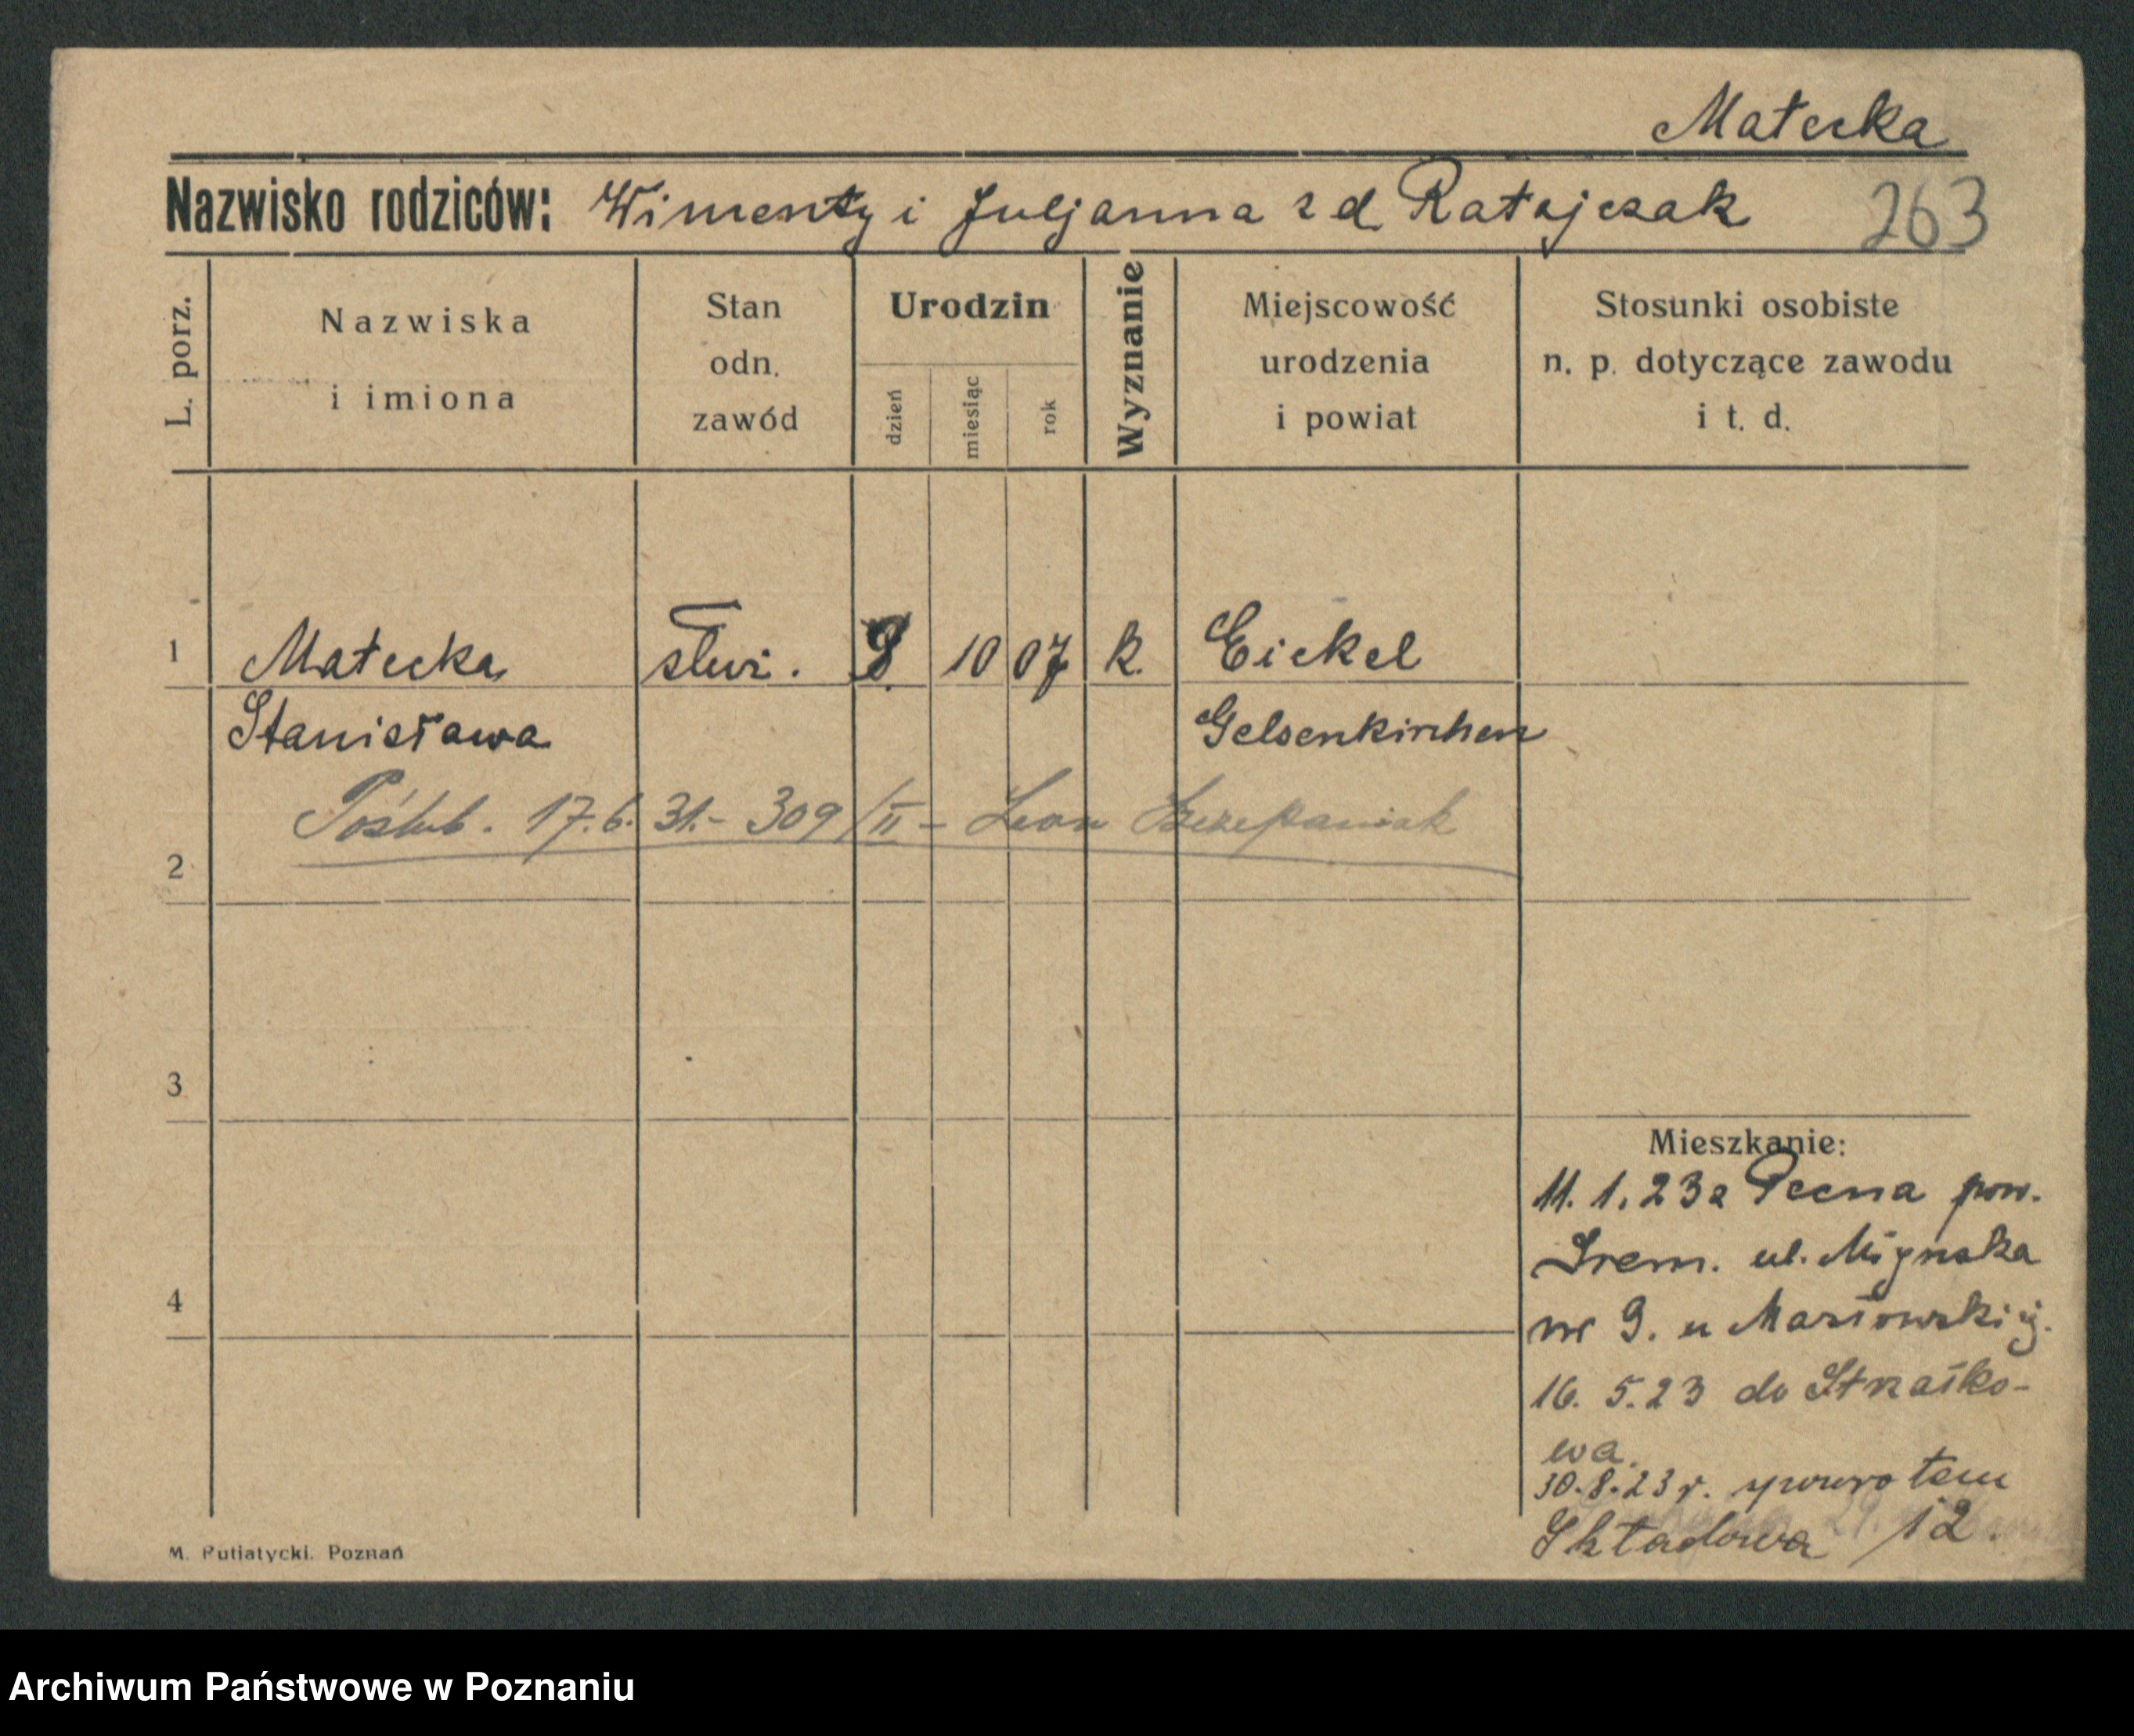 Małecka
Nazwisko rodziców: Wincenty i Juljanna z d Ratajczak 263
L. porz.
Nazwiska
i imiona
Stan
odn.
zawód
Urodzin
dzień
miesiąc
rok
Wyznanie
Miejscowość
urodzenia
i powiat
Stosunki osobiste
n. p. dotyczące zawodu
i t. d.
1 Małecka 10 07 k. Eickel
Stanisława Gelsenkirchen
Poślub. 17.6.31.- 309/II - Leon Szczepaniak
2
3
4
Mieszkanie:
11. 1. 23 z Pecna pow.
Śrem. ul.
nr 9. u Masłowskiej.
16. 5. 23 do Strzałko-
wa.
30.8.23 r. spowrotem
Składowa 12.
M. Putiatycki. Poznań
Archiwum Państwowe w Poznaniu